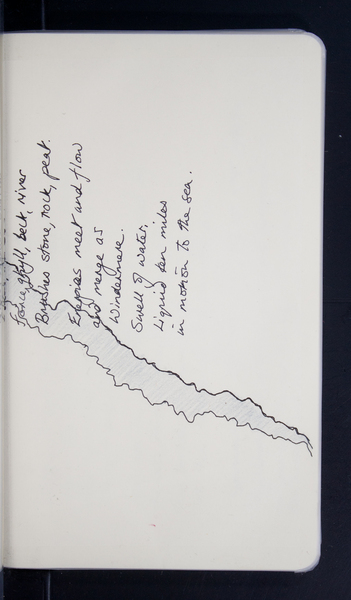 Force, ghyll, beck, river
Brushes stone, rock, peat.
Energies meet and flow
and merge as
Windermere.
Swell of water,
Liquid ten miles
in motion to the sea.